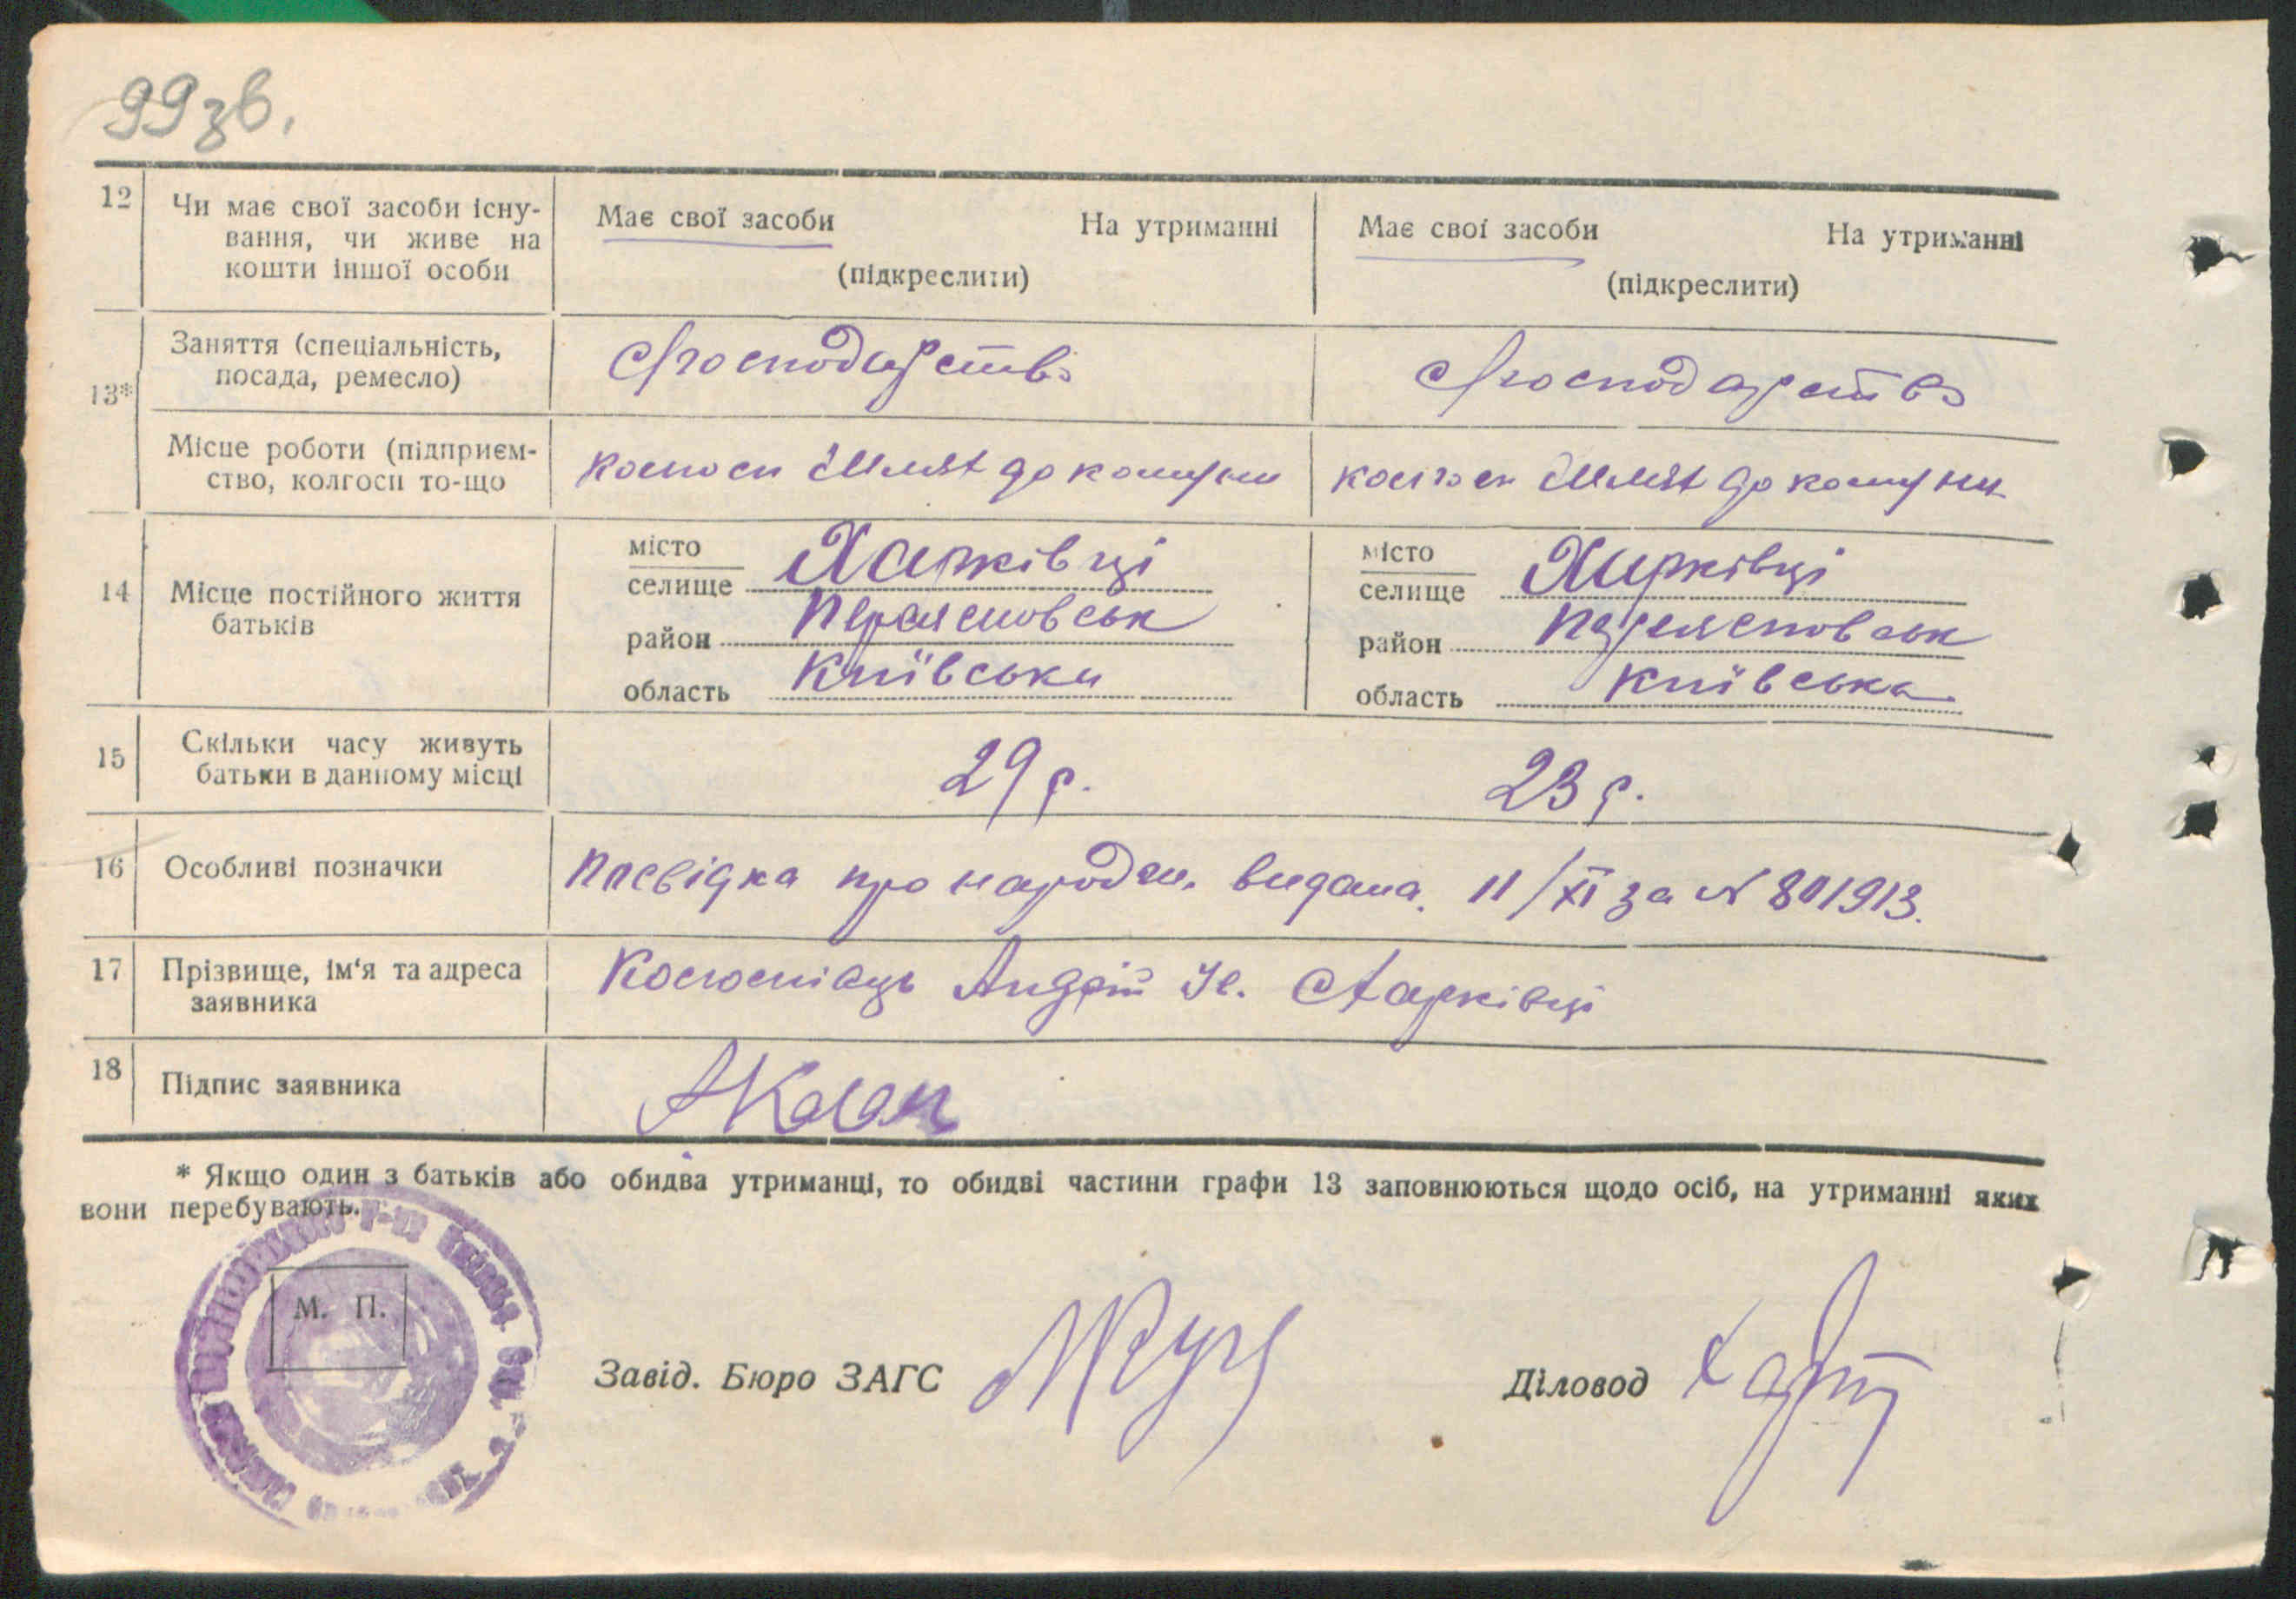 99 зв.
12 Чи має свої засоби існу-
вання, чи живе на
кошти іншої особи
Має свої засоби На утриманні
(підкреслити)
Має свої засоби На утриманні
(підкреслити)
13*
Заняття (спеціальність,
посада, ремесло)
Місце роботи (підприєм-
ство, колгосп то-що
Шлях до комуни
Шлях до комуни
14 Місце постійного життя
батьків
місто
селище Харківці
район
область Київська
місто
селище Харківці
район
область Київська
15 Скільки часу живуть
батьки в данному місці
29 р.
23 р.
16 Особливі позначки
Посвідка про народж. видана. 11/XI за № 801913.
17 Прізвище, ім'я та адреса
заявника
Андрій Харківці
18 Підпис заявника
* Якщо один з батьків або обидва утриманці, то обидві частини графи 13 заповнюються щодо осіб, на утриманні яких
вони перебувають.
М. П.
Завід. Бюро ЗАГС
Діловод